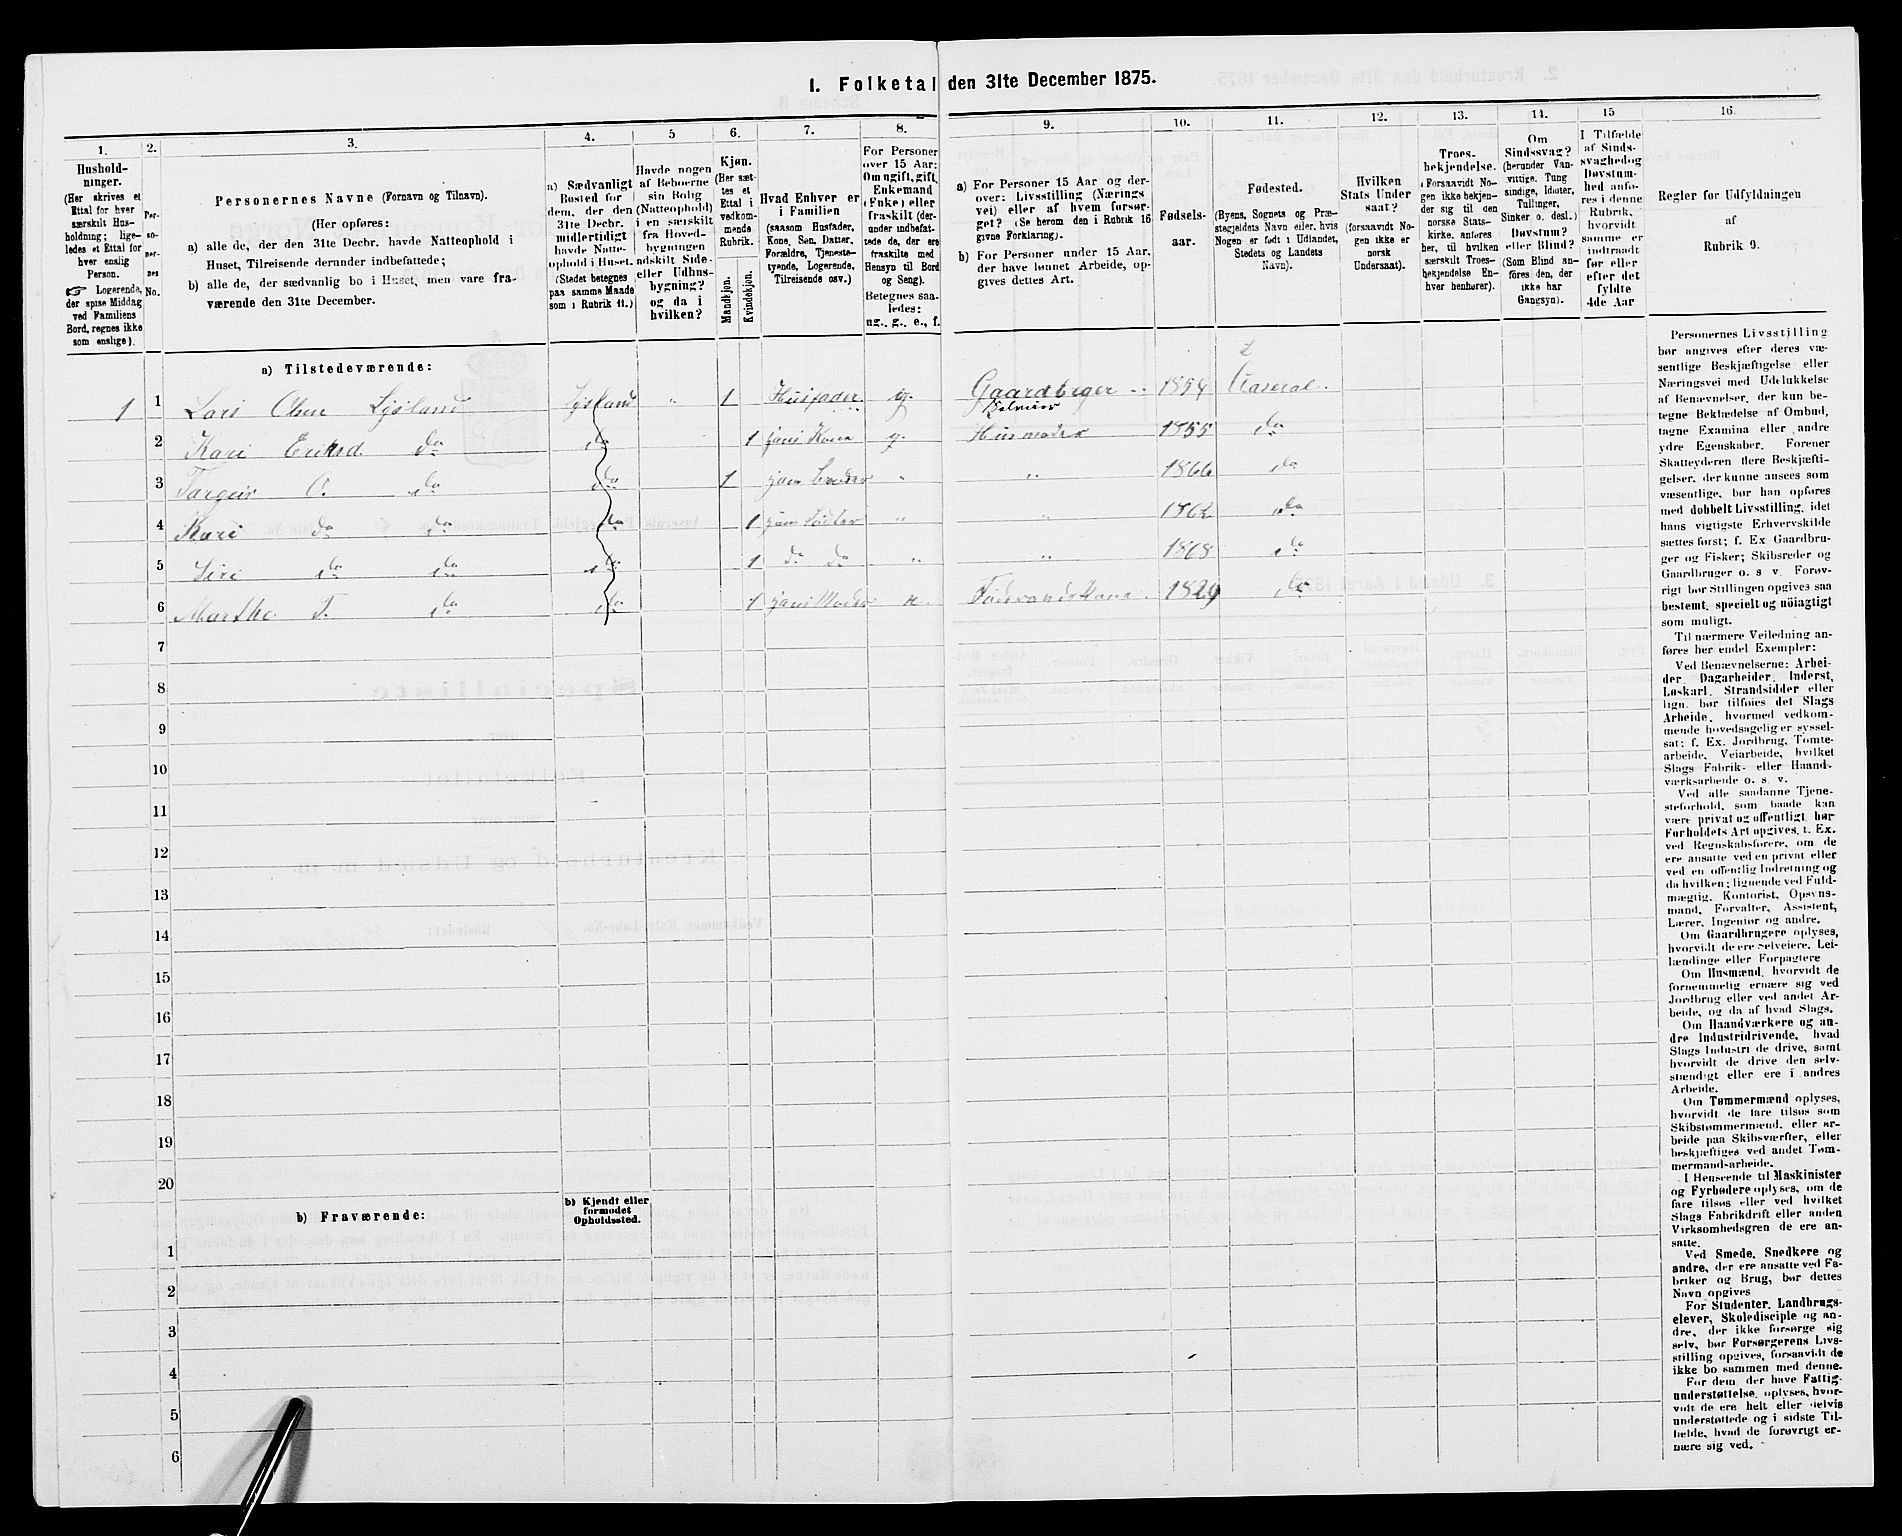 I. Folketal den 31te December 1875.
1.
Hushold-
ninger.
(Her skrives et
Ettal for hver
særskilt Hus-
holdning; lige-
ledes et Ettal for
hver enslig
Person.
☞ Logerende,
der spise Middag
ved Familiens
Bord, regnes ikke
som enslige).
2.
Per-
so-
ner-
nes
No.
3.
Personernes Navne (Fornavn og Tilnavn).
(Her opføres:
a) alle de, der den 31te Decbr. havde Natteophold i
Huset, Tilreisende derunder indbefattede;
b) alle de, der sædvanlig bo i Huset, men vare fra-
værende den 31te December.
4.
a) Sædvanligt
Bosted for
dem, der den
31te Decbr.
midlertidigt
havde Natte-
ophold i Huset.
(Stedet betegnes
paa samme Maade
som i Rubrik 11.)
5
Havde nogen
af Beboerne
sin Bolig
(Natteophold)
i en særskilt
fra Hoved-
bygningen
adskilt Side-
eller Udhus-
bygning?
og da i
hvilken?
6.
Kjøn.
(Her sæt-
tes et
Ettal i
vedkom-
mende
Rubrik.
Mandkjøn.
Kvindekjøn.
7.
Hvad Enhver er
i Familien
(saasom Husfader,
Kone, Søn, Datter,
Forældre, Tjeneste-
tyende, Logerende,
Tilreisende osv.)
8.
For Personer
over 15 Aar:
Om ugift, gift,
Enkemand
(Enke) eller
fraskilt (der-
under indbefat-
tede de, der ere
fraskilte med
Hensyn til Bord
og Seng).
Betegnes saa-
ledes:
ug., g., e., f.
9.
a) For Personer 15 Aar og der-
over: Livsstilling (Nærings-
vei) eller af hvem forsør-
get? (Se herom den i Rubrik 16
givne Forklaring).
b) For Personer under 15 Aar,
der have lønnet Arbeide, op-
gives dettes Art.
10.
Fødsels-
aar.
11.
Fødested.
(Byens, Sognets og Præ-
stegjeldets Navn eller, hvis
Nogen er født i Udlandet,
Stedets og Landets
Navn).
12.
Hvilken
Stats Under
saat?
(forsaavidt No-
gen ikke er
norsk
Undersaat).
13.
Troes-
bekjendelse.
(Forsaavidt No-
gen ikke bekjen-
der sig til den
norske Stats-
kirke, anføres
her, til hvilken
særskilt Troes-
bekjendelse En-
hver henhører).
14.
Om
Sindssvag?
(herunder Van-
vittige, Tung
sindige, Idioter,
Tullinger,
Sinker o. desl.)
Døvstum?
eller Blind?
(Som Blind an-
føres den, der
ikke har
Gangsyn).
15
I Tilfælde
af Sinds-
svaghed og
Døvstum-
hed anfø-
res i denne
Rubrik,
hvorvidt
samme er
indtraadt
før eller
efter det
fyldte
4de Aar
16.
Regler for Udfyldningen
af
Rubrik 9.
a) Tilstedeværende:
1 1 Lars Olsen Lysland Lysland " 1 Husfader g. Gaardbruger Selveier 1854 Aaseral.
2 Kari Eriksd. do do 1 hans Kone g. Husmoder 1855 do
3 Targeir O. do do 1 hans broder " " 1866 do
4 Kari do do do 1 hans Søster " " 1862 do
5 Siri do do do 1 do do " " 1868 do
6 Marthe T. do do 1 hans Moder e. Føderaadskone 1829 do
7
8
9
10
11
12
13
14
15
16
17
18
19
20
b) Fraværende:
b) Kjendt eller
formodet
Opholdssted.
1
2
3
4
5
6
Personernes Livsstilling
bør angives efter deres væ-
sentlige Beskjæftigelse eller
Næringsvei med Udelukkelse
af Benævnelser, der kun be-
tegne Beklædelse af Ombud,
tagne Examina eller andre
ydre Egenskaber. Forener
Skatteyderen flere Beskjæfti-
gelser, der kunne ansees som
væsentlige, bør han opføres
med dobbelt Livsstilling, idet
hans vigtigste Erhvervskilde
sættes først; f. Ex. Gaardbru-
ger og Fisker; Skibsreder og
Gaardbruger o. s v. Forøv-
rigt bør Stillingen opgives saa
bestemt, specielt og nøiagtigt
som muligt.
Til nærmere Veiledning an-
føres her endel Exempler:
Ved Benævnelserne: Arbei-
der, Dagarbeider, Inderst,
Løskarl, Strandsidder eller
lign. bør tilføies det Slags
Arbeide, hvormed vedkom-
mende hovedsagelig er syssel-
sat; f. Ex. Jordbrug, Tomte-
arbeide, Veiarbeide, hvilket
Slags Fabrik- eller Haand-
værksarbeide o. s. v.
Ved alle saadanne Tjene-
steforhold, som baade kan
være privat og offentligt, bør
Forholdets Art opgives, t. Ex.
ved Regnskabsførere, om de
ere ansatte ved en privat eller
ved en offentlig Indretning og
da hvilken; lignende ved Fuld-
mægtig, Kontorist, Opsyns-
mand, Forvalter, Assistent,
Lærer, Ingeniør og andre.
Om Gaardbrugere oplyses,
hvorvidt de ere Selveiere, Lei-
lændinge eller Forpagtere
Om Husmænd, hvorvidt de
fornemmelig ernære sig ved
Jordbrug eller ved andet Ar-
beide, og da af hvad Slags.
Om Haandværkere og an-
dre Industridrivende, hvad
Slags Industri de drive, samt
hvorvidt de drive den selv-
stændigt eller ere i andres
Arbeide.
Om Tømmermænd oplyses,
hvorvidt de fare tilsøs som
Skibstømmermænd, eller ar-
beide paa Skibsværfter, eller
beskjæftiges ved andet Tøm-
mermandsarbeide.
I Henseende til Maskinister
og Fyrbødere oplyses, om de
fare tilsøs eller ved hvilket
Slags Fabrikdrift eller anden
Virksomhedsgren de ere an-
satte.
Ved Smede, Snedkere og
andre, der ere ansatte ved Fa-
briker og Brug, bør dettes
Navn opgives
For Studenter, Landbrugs-
elever, Skoledisciple og an-
dre, der ikke forsørge sig
selv, bør Forsørgerens Livs-
stilling opgives, forsaavidt de
ikke bo sammen med denne.
For dem, der have Fattig-
understøttelse, oplyses, hvor-
vidt de ere helt eller delvis
understøttede og i sidste Til-
fælde, hvad de forøvrigt er-
nære sig ved.